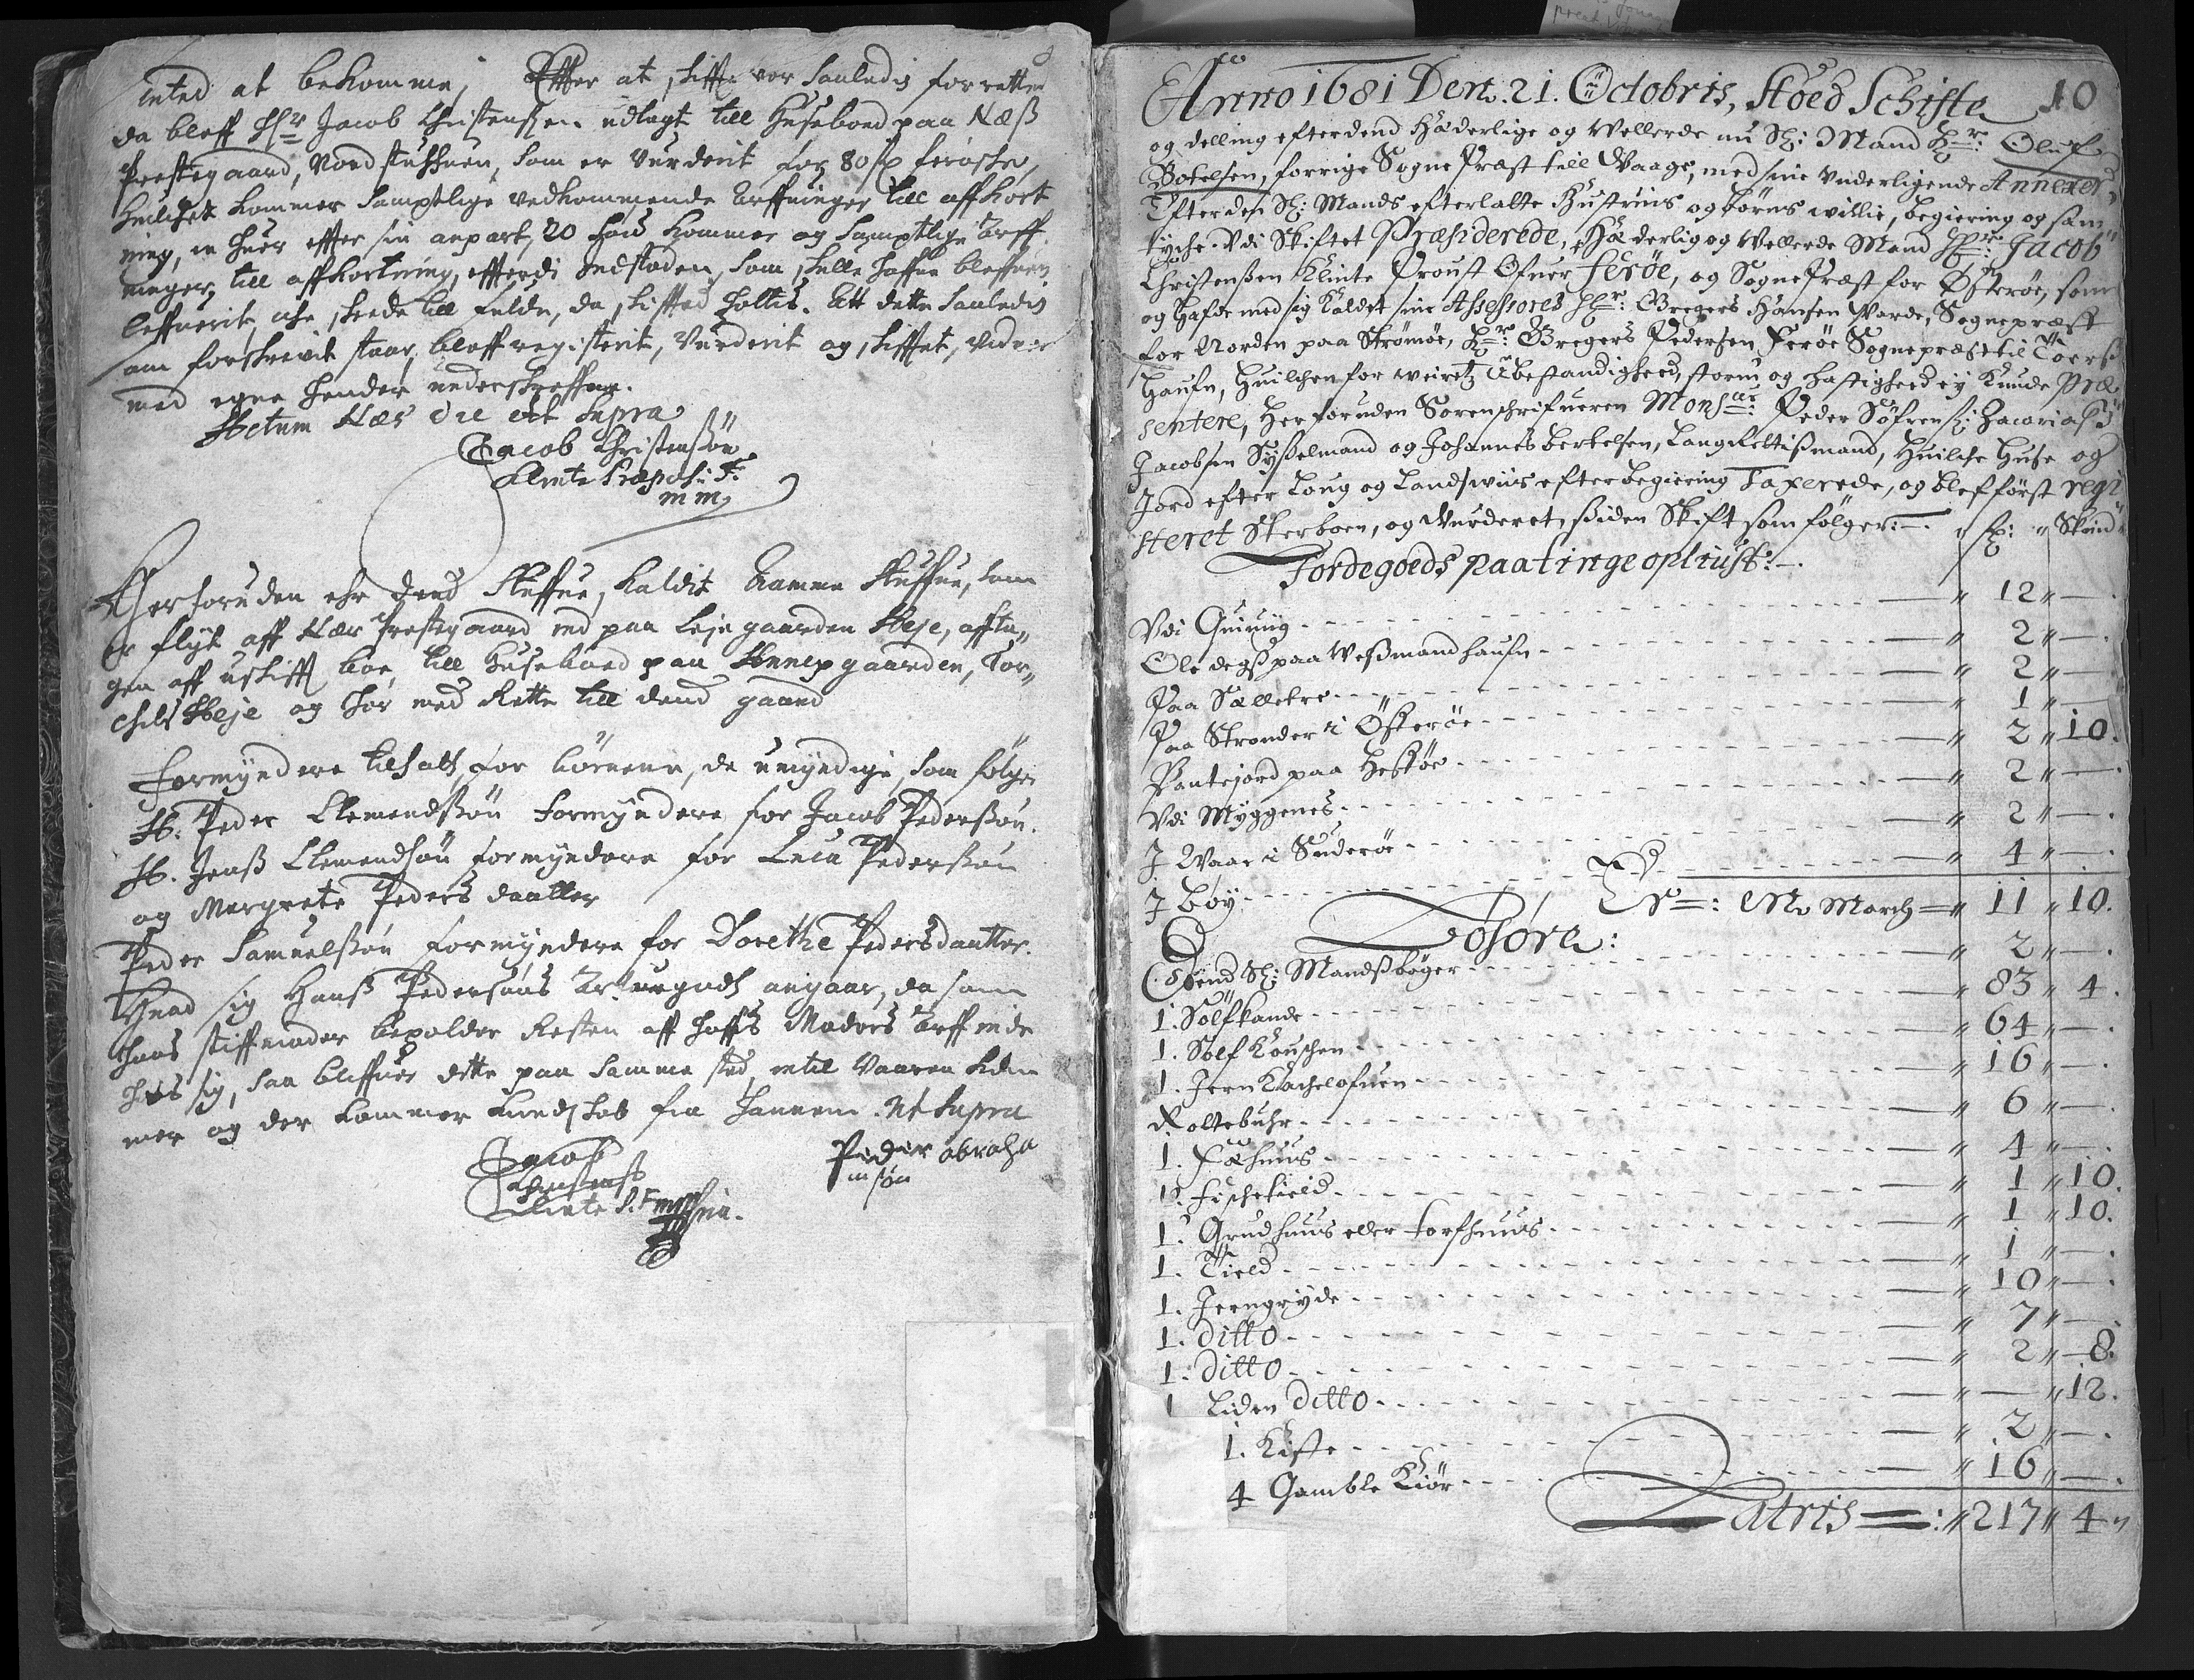 inted at bekomme, Effter at skifftet vor saaledis forrettet
da bleff Hr Jacob Christensen udlagt till Huseboed paa Næß
Prestegaard, Nordstuffuen, som er Vurderit for 80 færøske,
huilchet kommer samptlige vedkommende Arffuinger till affkort
ning, en huer effter sin anpart, 20 kommer og samptlige Arff
uinger, till affkortning, effterdi Indstaden, som skulle haffue bleffuen
leffuerit, iche skeede till fulde, da skifted holtis. Att dette saaledis
som forskrevit staar, bleff registerit, Vurderit og skifftet, vidner
med egne hender underskreffuen.
Actum Næs die ut supra
Jacob Christensøn
Klinte Præpos: F:
mm
Herforuden ehr dend Stuffue, kaldis Kamme Stuffue, som
er flyt aff Næs Prestegaard ind paa leje gaarden Heje, afftа„
gen aff uskifft boe, till Huseboed paa Annexgaarden, Tor„
chils Heje og hør med Rette till dend gaard
Formyndere tilsatt for börnene, de umyndige, som fölger
H. Peder Clemendsøn Formyndere for Jacob Pedersøn.
H. Jenß Clemendsøn formyndere for Lucas Pedersøn
og Margrete Peders daatter
Peder Samuelsøn formyndere for Dorethe Pedersdaatter.
Huad sig Hanß Pedersøns Arffuegods angaar, da som
hans stiffmoder beholder Resten aff hans Moders Arff inde
hos sig, saa bliffuer dette paa samme sted, intil Vaaren kom
mer og der kommer kundskab fra hannem. Ut supra
Jacob Christens
Klinte P.F. mpp
Peder Abraha
msøn
10
Anno 1681 Den. 21. Octobris, Stoed Schifte
og delling efter dend Hæderlige og Vellerde nu Sl: Mand Hr: Oluf
Botelsen, forrige Sogne Præst till Waage, med sine underligende Annexer,
Efter den Sl: Mands efterlatte Hustruis og börns willie, begiering og sam
tyche. Udi Skiftet Præsiderede, Hæderlig og Vellerde Mand Hr: Jacob
Christenßen Klinte Proust Ofuer Ferøe, og Sogne Præst for Østerøe, som
og hafde med sig Kaldet sine Assessores Hr: Gregers Hansen Warde, Sognepræst
for Norden paa Strømøe, Hr: Gregers Pedersen Ferøe Sognepræst til Toerß
Haufn, Huilchen for weiretz Ubestandighed, storm og hastighed ej Kunde Præ
sentere, Her foruden Sorenschrifueren Monsr: Peder Söfrens: Zacarias
Jacobsen Syßelmand og Johannes Bertelsen, Langrettißmand, Huilche Huse og
Jord efter Loug og Landswiis efter begiering Taxerede, og blef först regi
steret Sterboen, og Vurderet, siden Skift som fölger:
Jordegoeds paa tinge opliust: „ „ Skind
Udi Quiuiig „ 12 „ — .
Ole degß paa Weßmandhaufn „ 2 „ — .
Paa Sælletre „ 2 „ —
Paa Strender i Österöe „ 1 „ —
Pantejord paa Hestöe „ 2 „ 10.
Udi Myggenes „ 2 „ — .
J Waag i Suderöe „ 2 „ — .
J böy „ 4 „ — .
Er: No March „ 11 „ 10.
Løsøre:
Dend Sl: Mandß böger „ 2 „ — .
1. Sölfkande „ 83 „ 4.
1. Sölf Kouschen „ 64 „ — .
1. Jern Kachelofuen „ 16 „ — .
Roltebuhr „ 6 „ — .
1. Fæhuus „ 4 „ — .
1. Fischekield „ 1 „ 10.
1. Grudhuus eller torfhuus „ 1 „ 10.
1. Tield „ 1 „ — .
1. Jerngryde „ 10 „ — .
1. Ditto „ 7 „ — .
1. Ditto „ 2 „ 8.
1 Liden Ditto „ — „ 12.
1. Kiste „ 2 „ — .
4 Gamble Kiör „ 16 „ — .
Latris „ 217 „ 4 „